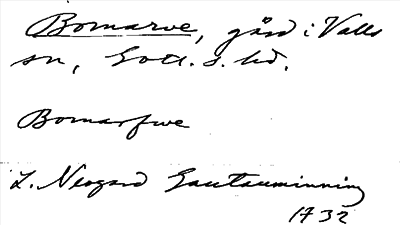 Bomarve, gård i Valls
sn, Gotl. s. hd.
Bomarfwe
L. Neogard Gautauminning
1732